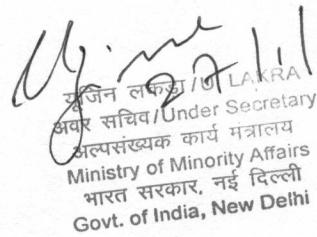 27/11
यूजिन लकड़ा / LAKRA
अवर सचिव/Under Secretary
अल्पसंख्यक कार्य मंत्रालय
Ministry of Minority Affairs
भारत सरकार, नई दिल्ली
Govt. of India, New Delhi